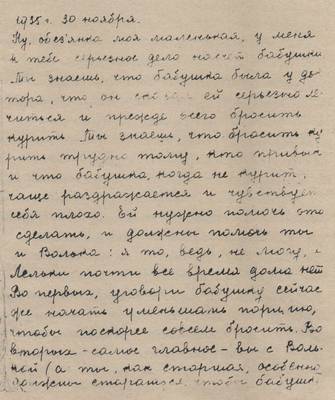 1935 г. 30 ноября.
Ну, обезянка моя маленькая, у меня
к тебе серьезное дело насчет бабушки
Ты знаешь, что бабушка была у до-
тора, что он сказал ей серьезно ле-
читься и прежде всего бросить
курить. Ты знаешь, что бросить ку-
рить трудно тому, кто привык
и что бабушка, когда не курит,
чаще раздражается и чувствует
себя плохо. Ей нужно помочь это
сделать, и должны помочь ты
и Волька: я то, ведь, не могу,
Ляльки почти все время дома нет
Во первых, уговори бабушку сейчас
же начать уменьшать порцию,
чтобы поскорее совсем бросить. Во
вторых - самое главное - вы с Воль-
кой (а ты, как старшая, особенно
должны стараться, чтобы бабушк